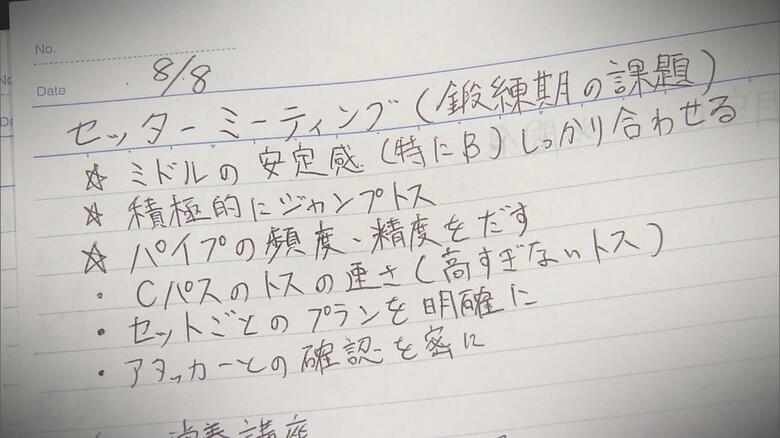 No.
Date 8/8
セッターミーティング(鍛練期の課題)
☆ ミドルの安定感(特にB)しっかり合わせる
☆ 積極的にジャンプトス
☆ パイプの頻度、精度をだす
・ Cパスのトスの速さ(高すぎないトス)
・ セットごとのプランを明確に
・ アタッカーとの確認を密に
講座